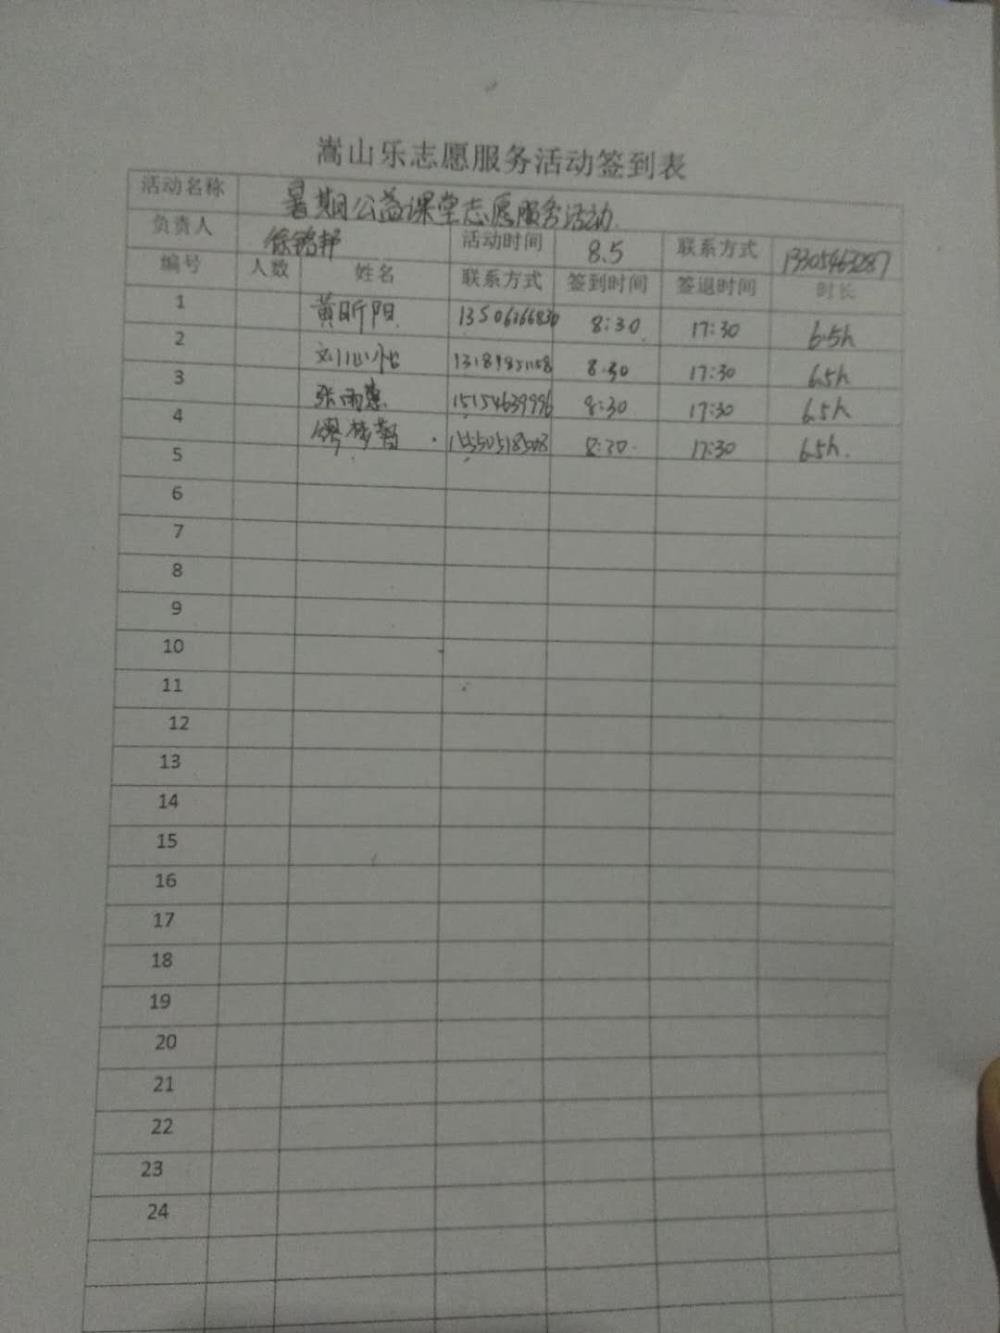 嵩山乐志愿服务活动签到表
活动名称 暑期公益课堂志愿服务活动
负责人 活动时间 8.5 联系方式 13305463287
编号 人数 姓名 联系方式 签到时间 签退时间 时长
1 黄昕阳 8:30 17:30 6.5h
2 8:30 17:30 6.5h
3 张雨蕙 15154639996 8:30 17:30 6.5h
4 15550518508 8:30 17:30 6.5h
5
6
7
8
9
10
11
12
13
14
15
16
17
18
19
20
21
22
23
24